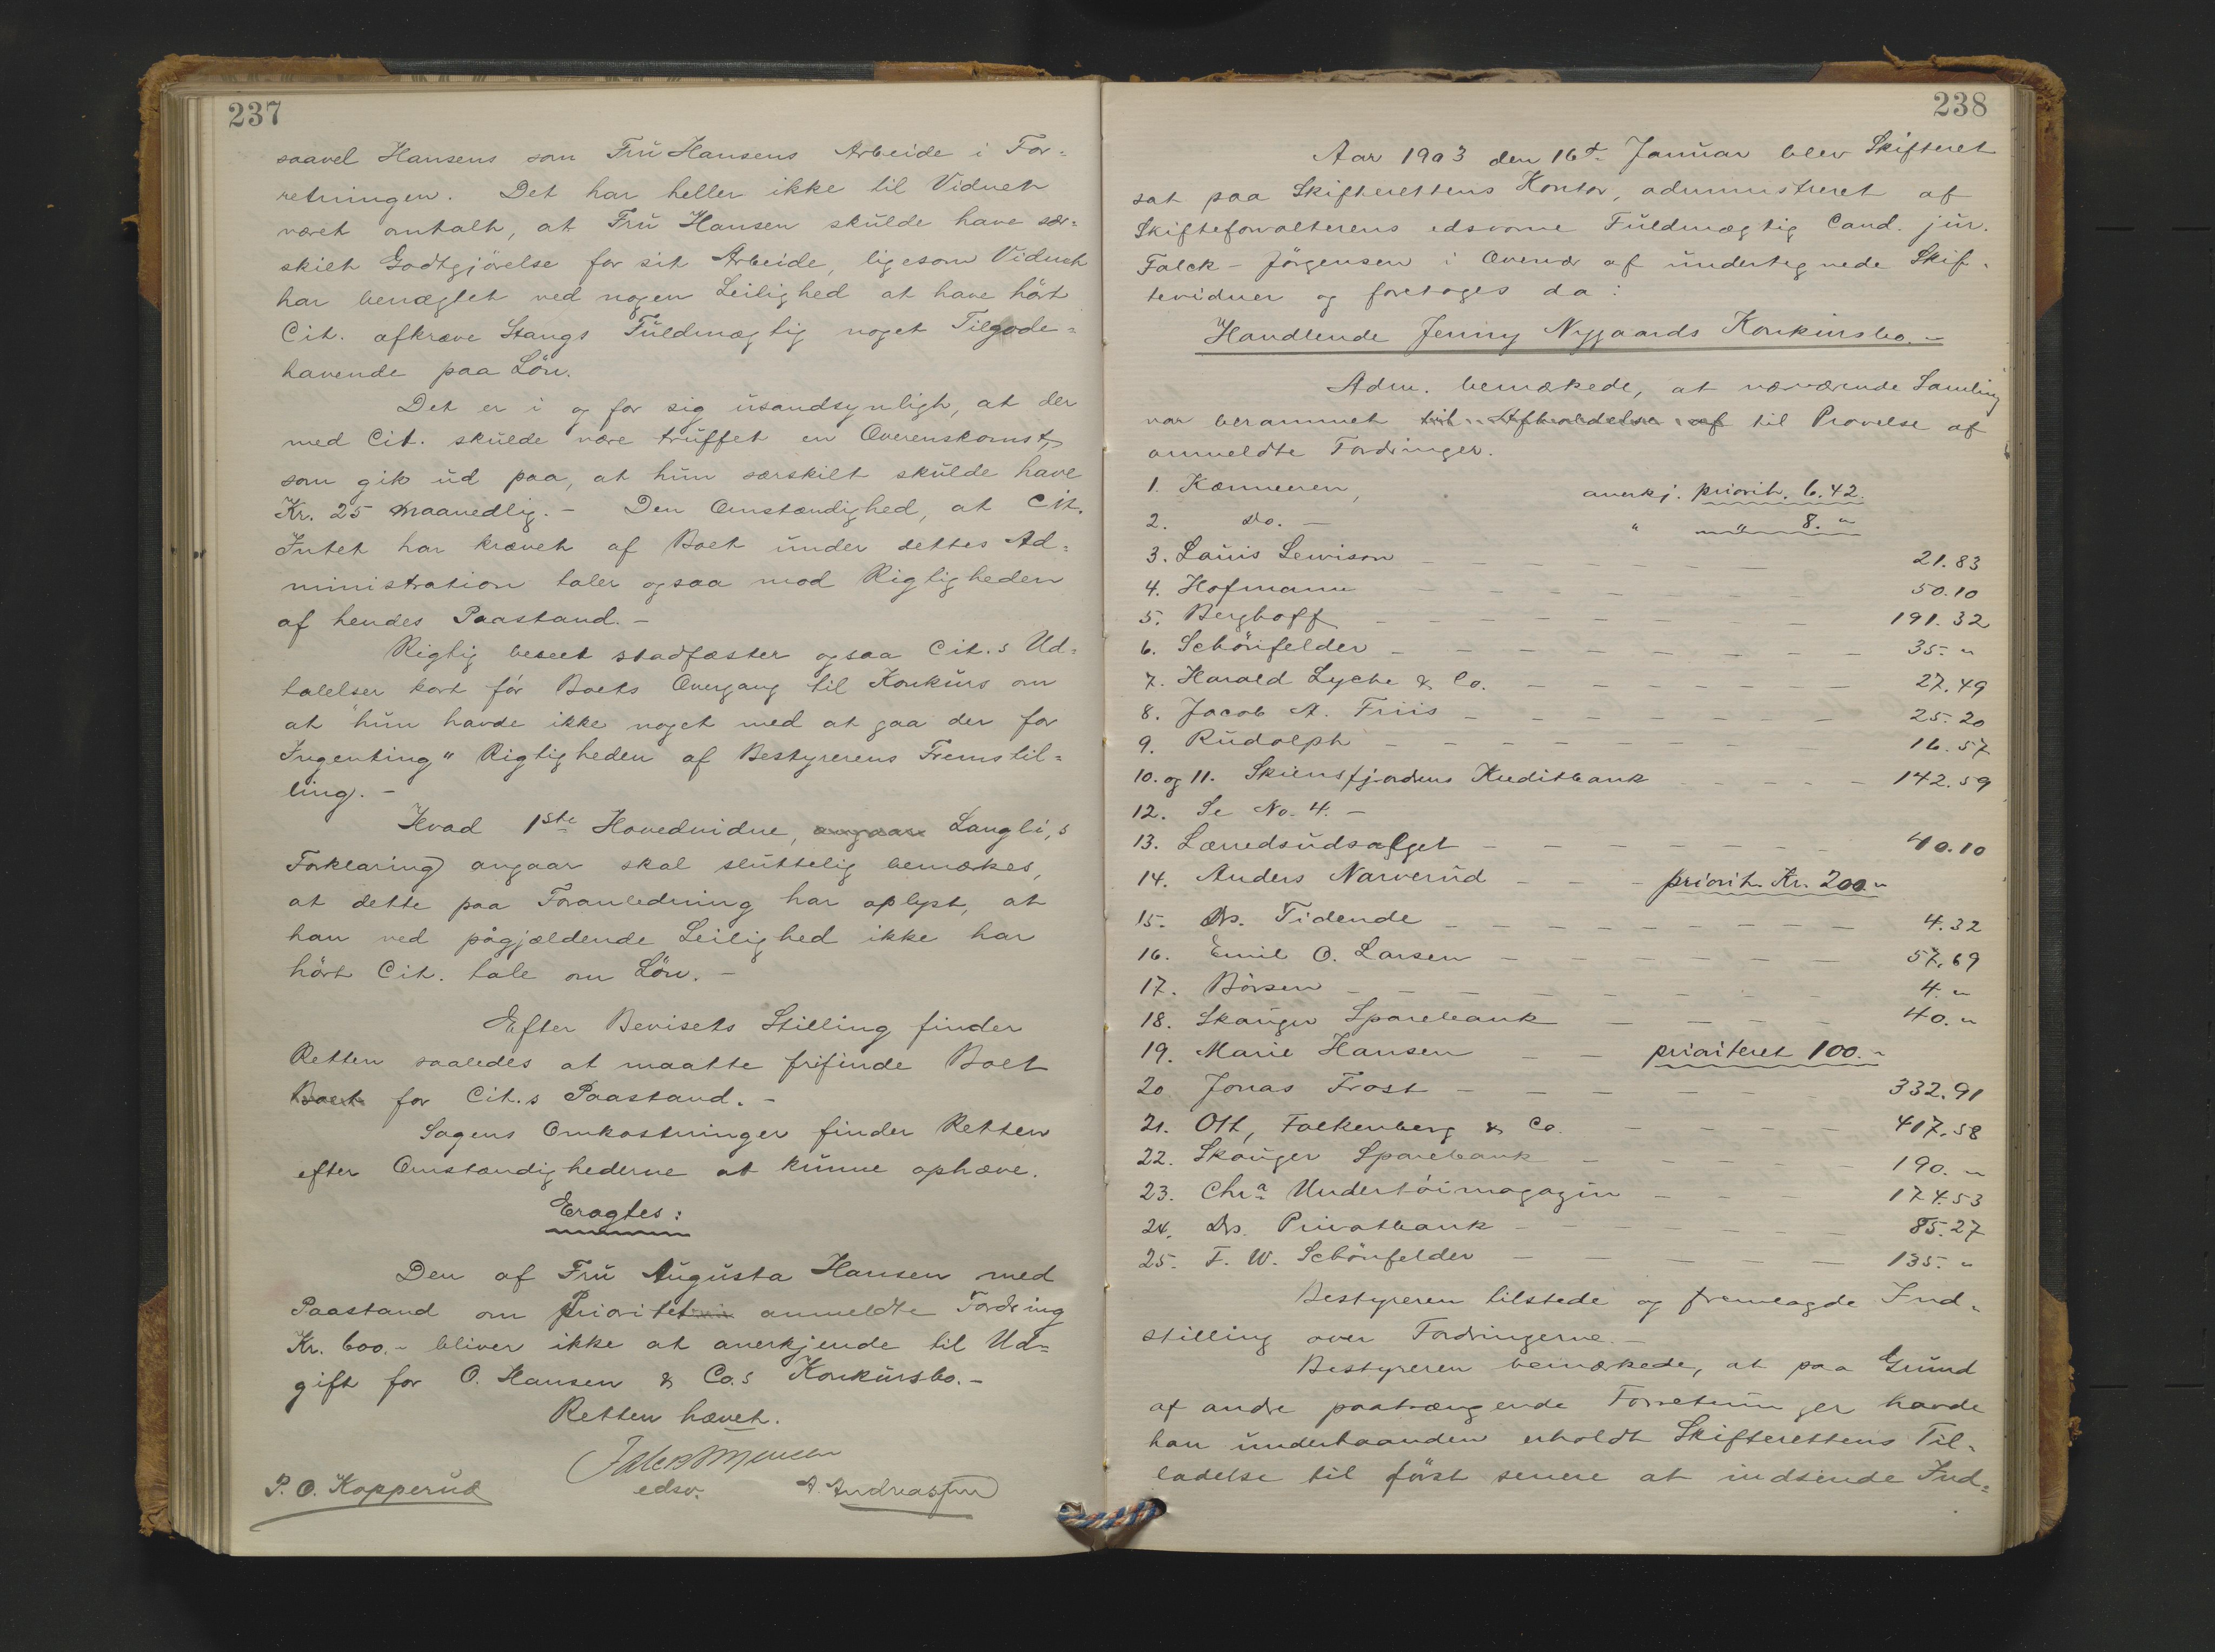 237
saavel Hansens som Fru Hansens Arbeide i For=
retningen. Det har heller ikke til Vidnet
været omtalt, at Fru Hansen skulde have sær=
skilt Godtgjörelse for sit Arbeide, ligesom Vidnet
har benægtet ved nogen Leilighed at have hört
Cit. afkræve Stangs Fuldmægtig noget Tilgode=
havende paa Lön.
Det er i og for sig usandsynligt, at der
med Cit. skulde være truffet en Overenskomst,
som gik ud paa, at hun særskilt skulde have
Kr. 25 maanedlig. - Den Omstændighed, at Cit.
Intet har krævet af Boet under dettes Ad=
ministration taler ogsaa mod Rigtigheden
af hendes Paastand. -
Rigtig beseet stadfæster ogsaa Cit.s Ud=
talelser kort för Boets Overgang til Konkurs om
at "hun havde ikke noget med at gaa der for
Ingenting" Rigtigheden af Bestyrerens Fremstil=
ling. -
Hvad 1ste Hovedvidne, angaar Langli,s
Forklaring angaar skal sluttelig bemærkes,
at dette paa Foranledning har oplyst, at
han ved pågjældende Leilighed ikke har
hört Cit. tale om Lön. -
Efter Bevisets Stilling finder
Retten saaledes at maatte frifinde Boet
Boet for Cit.s Paastand. -
Sagens Omkostninger finder Retten
efter Omstændighederne at kunne ophæve.
Eragtes:
Den af Fru Augusta Hansen med
Paastand om Prioritet anmeldte Fordring
Kr. 600.- bliver ikke at anerkjende til Ud=
gift for O. Hansen & Co.s Konkursbo. -
Retten hævet.
Falck Jörgensen
P. O. Kopperud edsv. A. Andreassen
238
Aar 1903 den 16d. Januar blev Skifteret
sat paa Skifterettens Kontor, administreret af
Skifteforvalterens edsvorne Fuldmægtig Cand. jur.
Falck-Jörgensen i Overvær af undertegnede Skif=
tevidner og foretoges da:
Handlende Jenny Nygaards Konkursbo. -
Adm. bemærkede, at nærværende Samling
var berammet til Afholdelse af til Prøvelse af
anmeldte Fordringer.
1. Kæmneren, anerkj. priorit. 6.42.
2. do. - " " 8. "
3. Louis Lewison - 21.83
4. Hofmann - 50.10
5. Berghoff - 191.32
6. Schönfelder - 35. "
7. Harald Lyche & Co. - 27.49
8. Jacob A. Friis - 25.20
9. Rudolph - 16.57
10. og 11. Skiensfjordens Kreditbank - 142.59
12. Se No. 4. -
13. Lærredsudsalget - 40.10
14. Anders Narverud - priorit. Kr. 200 "
15. Ds. Tidende - 4.32
16. Emil O. Larsen - 57.69
17. Börsen - 4. "
18. Skauger Sparebank - 40. "
19. Marie Hansen - prioriteret 100. "
20 Jonas Frost - 332.91
21. Ott, Falkenberg & Co. - 417.58
22. Skouger Sparebank - 190. "
23. Chra Undertöimagazin - 174.53
24. Ds. Privatbank - 85.27
25. F. W. Schönfelder - 135. "
Bestyreren tilstede og fremlagde Ind=
stilling over Fordringerne. -
Bestyreren bemærkede, at paa Grund
af andre paatrængende Forretninger havde
han underhaanden erholdt Skifterettens Til=
ladelse til först senere at indsende Ind=